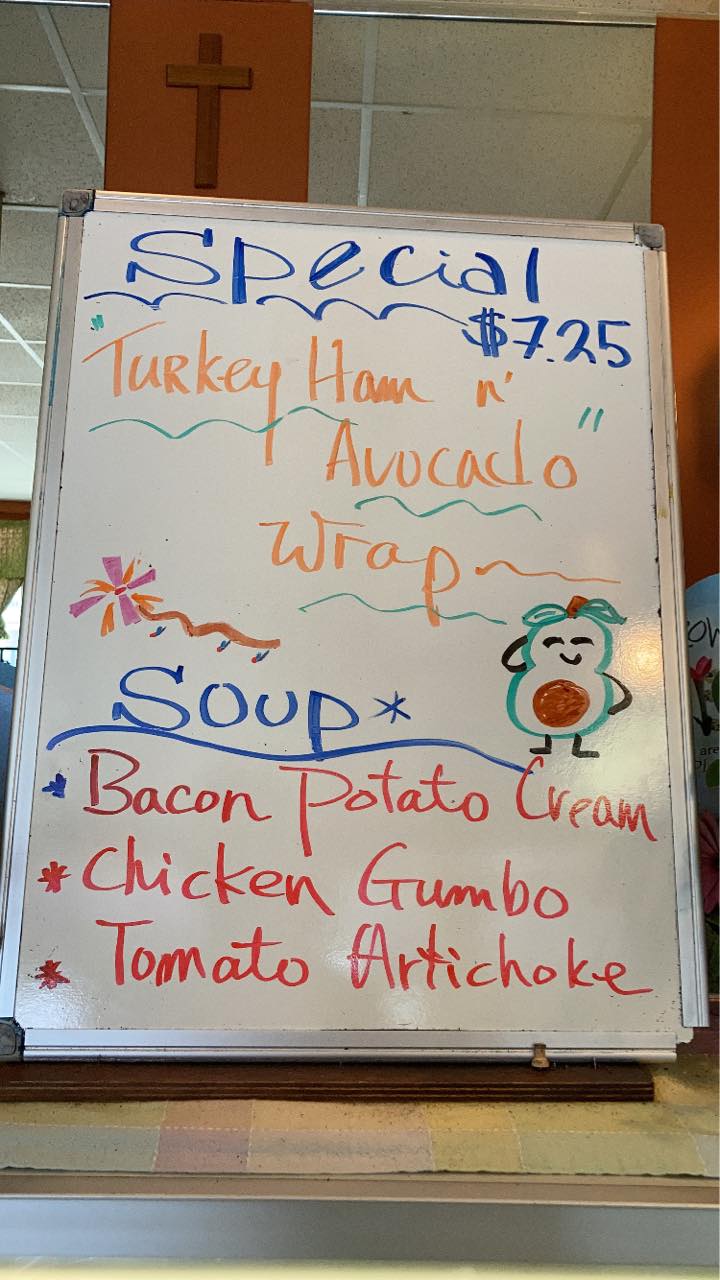 Special
$7.25
"Turkey Ham n'
Avocado"
Wrap
Soup*
* Bacon Potato Cream
* Chicken Gumbo
* Tomato Artichoke